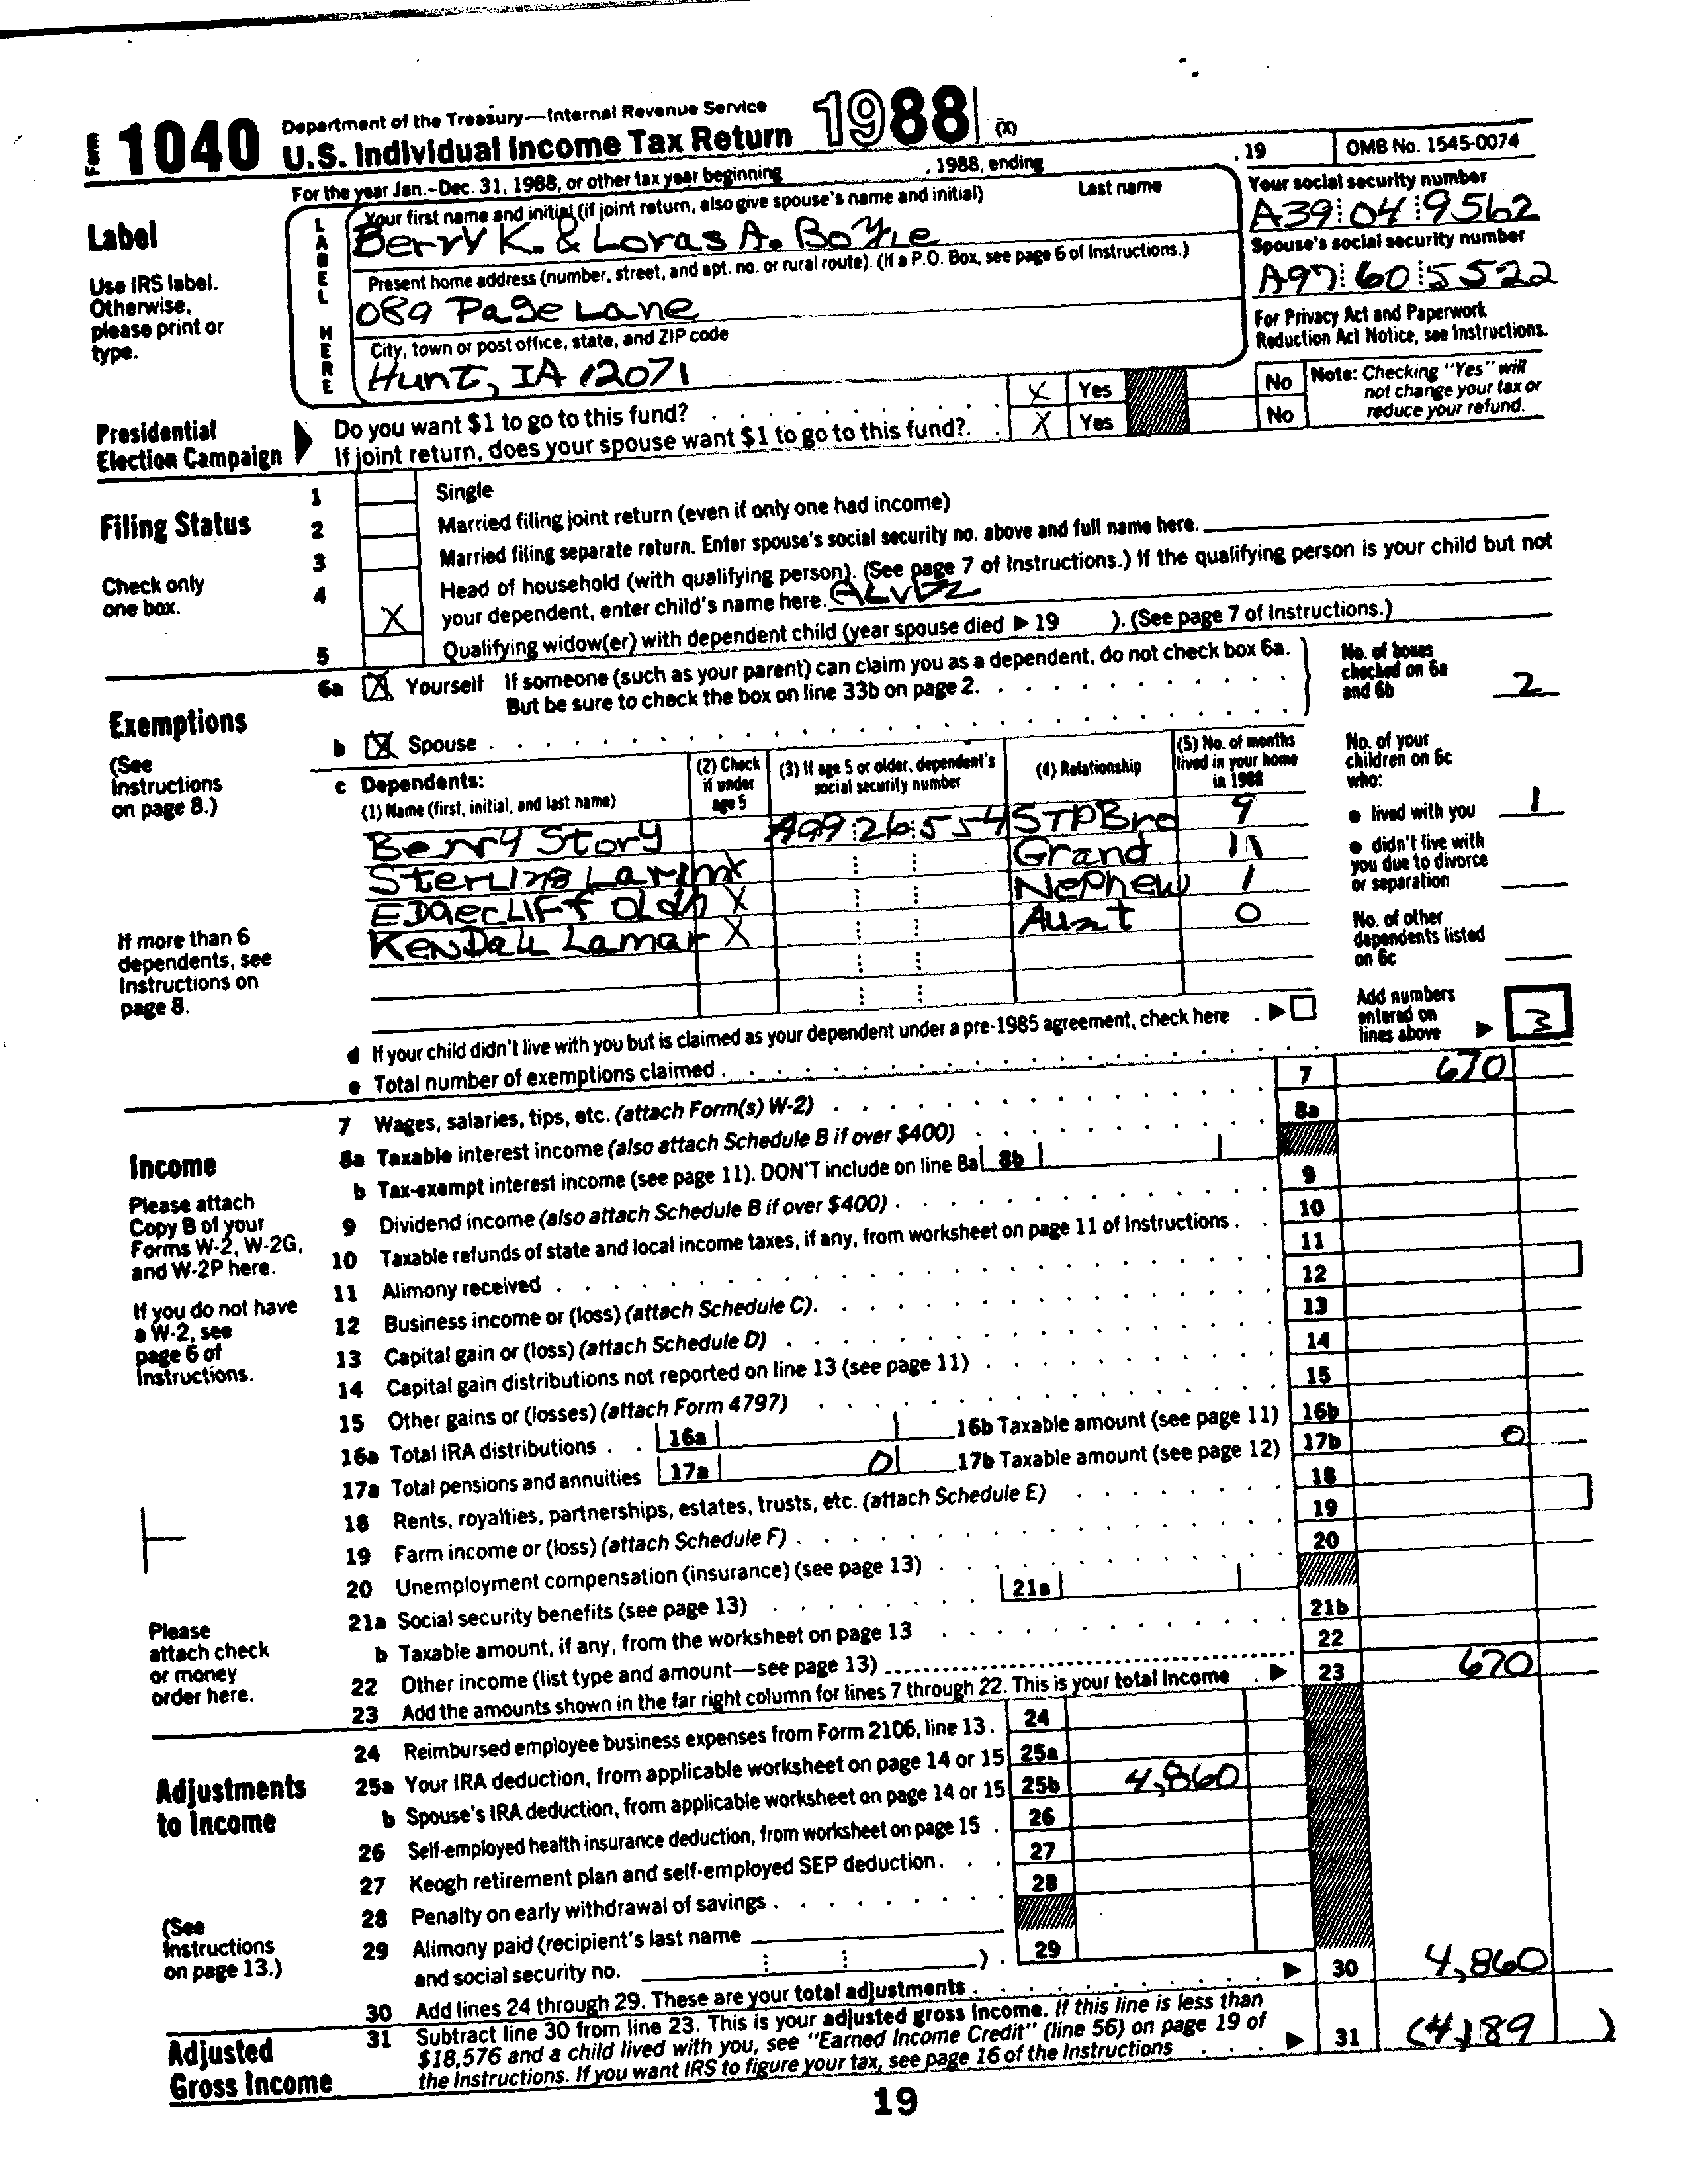 Form 1040 Department of the Treasury—Internal Revenue Service
U.S. Individual Income Tax Return 1988 (X)
For the year Jan.-Dec. 31, 1988, or other tax year beginning , 1988, ending , 19 OMB No. 1545-0074
Label
Use IRS label.
Otherwise,
please print or
type.
LABEL HERE
Your first name and initial (if joint return, also give spouse's name and initial) Last name
Berry K. & Loras A. Boyle
Your social security number
A39 04 9562
Present home address (number, street, and apt. no. or rural route). (If a P.O. Box, see page 6 of Instructions.)
089 Page Lane
Spouse's social security number
A97 60 5522
City, town or post office, state, and ZIP code
Hunt, IA 12071
For Privacy Act and Paperwork
Reduction Act Notice, see Instructions.
Presidential
Election Campaign
Do you want $1 to go to this fund? X Yes No
If joint return, does your spouse want $1 to go to this fund? X Yes No
Note: Checking "Yes" will
not change your tax or
reduce your refund.
Filing Status
Check only
one box.
1 Single
2 Married filing joint return (even if only one had income)
3 Married filing separate return. Enter spouse's social security no. above and full name here.
4 X Head of household (with qualifying person). (See page 7 of Instructions.) If the qualifying person is your child but not
your dependent, enter child's name here.
5 Qualifying widow(er) with dependent child (year spouse died ▶ 19 ). (See page 7 of Instructions.)
Exemptions
(See
Instructions
on page 8.)
6a X Yourself If someone (such as your parent) can claim you as a dependent, do not check box 6a.
But be sure to check the box on line 33b on page 2.
b X Spouse
No. of boxes
checked on 6a
and 6b 2
c Dependents:
(1) Name (first, initial, and last name)
(2) Check
if under
age 5
(3) If age 5 or older, dependent's
social security number
(4) Relationship
(5) No. of months
lived in your home
in 1988
Berry Story A99 26 554 STPBro 9
Sterling Larim X Grand 11
Edgecliff Oldh X Nephew 1
Kendall Lamar X Aunt 0
No. of your
children on 6c
who:
• lived with you 1
• didn't live with
you due to divorce
or separation
No. of other
dependents listed
on 6c
If more than 6
dependents, see
Instructions on
page 8.
d If your child didn't live with you but is claimed as your dependent under a pre-1985 agreement, check here ▶
e Total number of exemptions claimed
Add numbers
entered on
lines above ▶ 3
Income
Please attach
Copy B of your
Forms W-2, W-2G,
and W-2P here.
If you do not have
a W-2, see
page 6 of
Instructions.
Please
attach check
or money
order here.
7 Wages, salaries, tips, etc. (attach Form(s) W-2) 7 670
8a Taxable interest income (also attach Schedule B if over $400) 8a
b Tax-exempt interest income (see page 11). DON'T include on line 8a 8b
9 Dividend income (also attach Schedule B if over $400) 9
10 Taxable refunds of state and local income taxes, if any, from worksheet on page 11 of Instructions 10
11 Alimony received 11
12 Business income or (loss) (attach Schedule C) 12
13 Capital gain or (loss) (attach Schedule D) 13
14 Capital gain distributions not reported on line 13 (see page 11) 14
15 Other gains or (losses) (attach Form 4797) 15
16a Total IRA distributions 16a 16b Taxable amount (see page 11) 16b
17a Total pensions and annuities 17a 0 17b Taxable amount (see page 12) 17b 0
18 Rents, royalties, partnerships, estates, trusts, etc. (attach Schedule E) 18
19 Farm income or (loss) (attach Schedule F) 19
20 Unemployment compensation (insurance) (see page 13) 20
21a Social security benefits (see page 13) 21a
b Taxable amount, if any, from the worksheet on page 13 21b
22 Other income (list type and amount—see page 13) 22
23 Add the amounts shown in the far right column for lines 7 through 22. This is your total income ▶ 23 670
Adjustments
to Income
(See
Instructions
on page 13.)
24 Reimbursed employee business expenses from Form 2106, line 13. 24
25a Your IRA deduction, from applicable worksheet on page 14 or 15 25a
b Spouse's IRA deduction, from applicable worksheet on page 14 or 15 25b 4,860
26 Self-employed health insurance deduction, from worksheet on page 15 26
27 Keogh retirement plan and self-employed SEP deduction 27
28 Penalty on early withdrawal of savings 28
29 Alimony paid (recipient's last name
and social security no. ) 29
30 Add lines 24 through 29. These are your total adjustments ▶ 30 4,860
Adjusted
Gross Income
31 Subtract line 30 from line 23. This is your adjusted gross income. If this line is less than
$18,576 and a child lived with you, see "Earned Income Credit" (line 56) on page 19 of
the Instructions. If you want IRS to figure your tax, see page 16 of the Instructions ▶ 31 (4,189 )
19